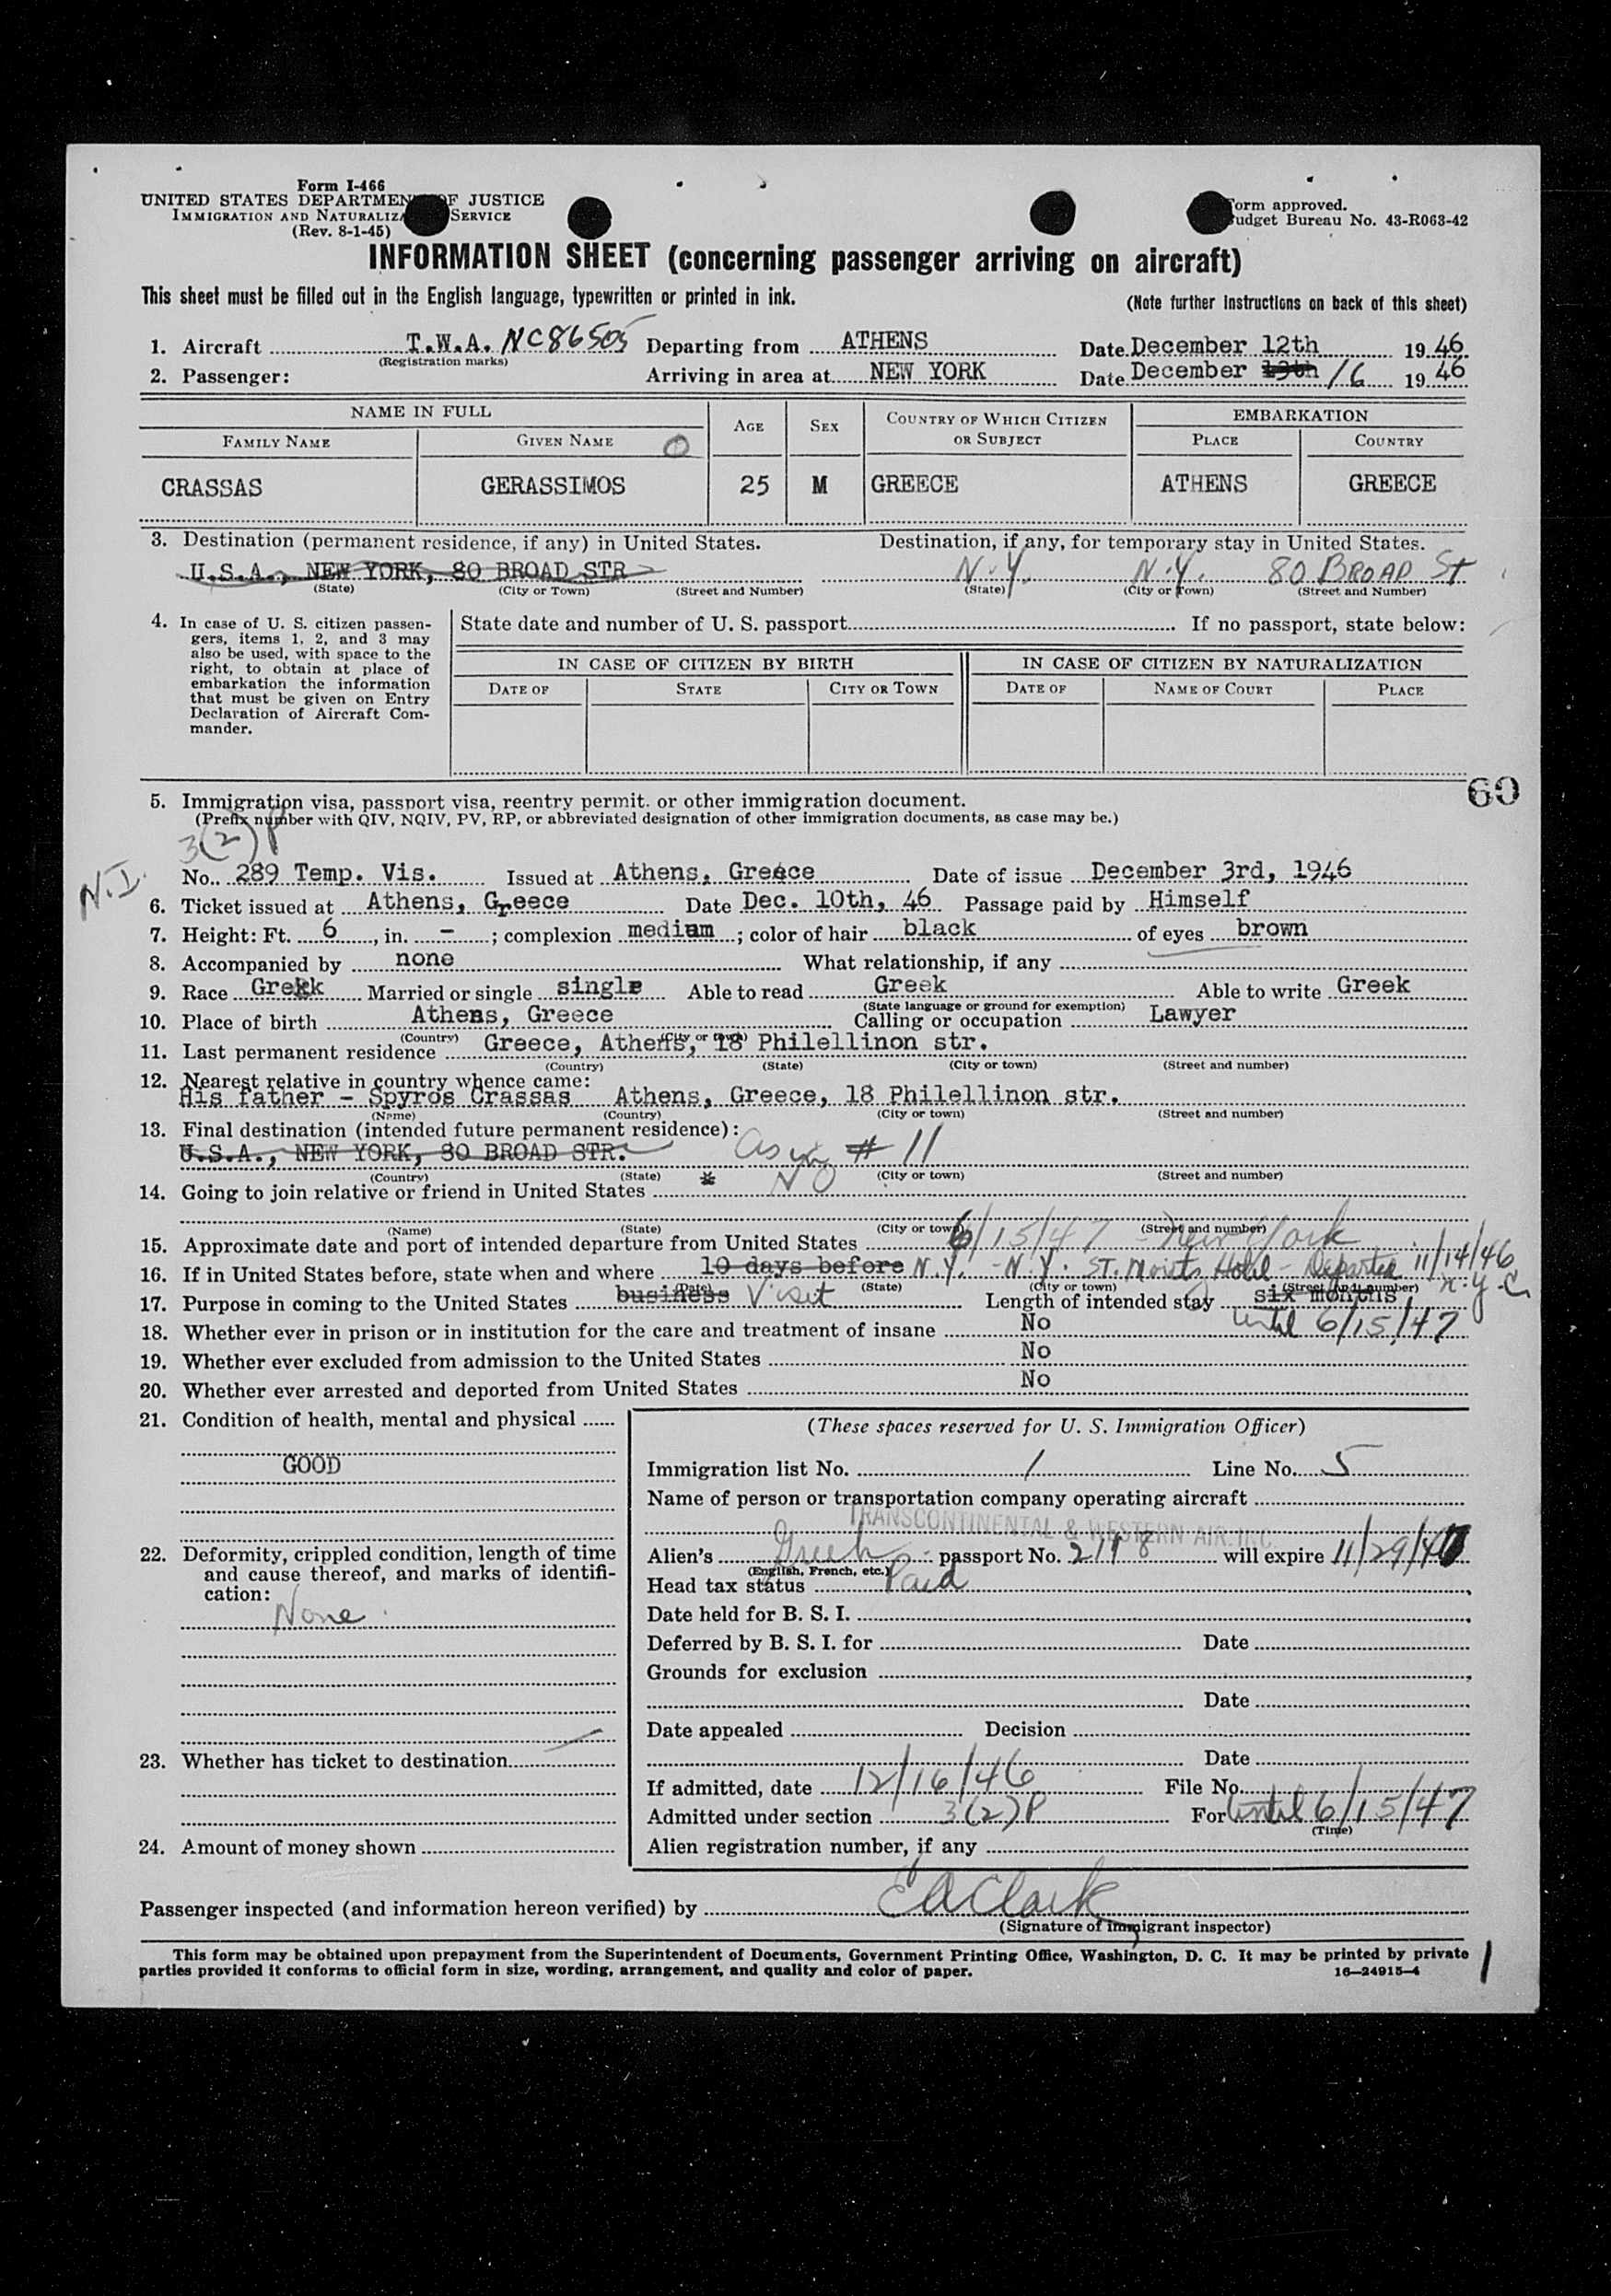 Form I-466
UNITED STATES DEPARTMENT OF JUSTICE
IMMIGRATION AND NATURALIZA SERVICE
(Rev. 8-1-45)
orm approved.
udget Bureau No. 43-R063-42
INFORMATION SHEET (concerning passenger arriving on aircraft)
This sheet must be filled out in the English language, typewritten or printed in ink.
(Note further instructions on back of this sheet)
1. Aircraft T.W.A. NC86505 Departing from ATHENS Date December 12th 1946
(Registration marks)
2. Passenger: Arriving in area at NEW YORK Date December 13th 16 1946
NAME IN FULL AGE SEX COUNTRY OF WHICH CITIZEN OR SUBJECT EMBARKATION
FAMILY NAME GIVEN NAME PLACE COUNTRY
CRASSAS GERASSIMOS 25 M GREECE ATHENS GREECE
3. Destination (permanent residence, if any) in United States. Destination, if any, for temporary stay in United States.
U.S.A., NEW YORK, 80 BROAD STR N.Y. N.Y. 80 BROAD St
(State) (City or Town) (Street and Number) (State) (City or Town) (Street and Number)
4. In case of U. S. citizen passengers, items 1, 2, and 3 may also be used, with space to the right, to obtain at place of embarkation the information that must be given on Entry Declaration of Aircraft Commander.
State date and number of U. S. passport If no passport, state below:
IN CASE OF CITIZEN BY BIRTH IN CASE OF CITIZEN BY NATURALIZATION
DATE OF STATE CITY OR TOWN DATE OF NAME OF COURT PLACE
60
5. Immigration visa, passport visa, reentry permit, or other immigration document.
(Prefix number with QIV, NQIV, PV, RP, or abbreviated designation of other immigration documents, as case may be.)
3(2)P
N.I.
No. 289 Temp. Vis. Issued at Athens, Greece Date of issue December 3rd, 1946
6. Ticket issued at Athens, Greece Date Dec. 10th, 46 Passage paid by Himself
7. Height: Ft. 6, in. -; complexion medium; color of hair black of eyes brown
8. Accompanied by none What relationship, if any
9. Race Greek Married or single single Able to read Greek Able to write Greek
(State language or ground for exemption)
10. Place of birth Athens, Greece Calling or occupation Lawyer
(Country) (City or town)
11. Last permanent residence Greece, Athens, 18 Philellinon str.
(Country) (State) (City or town) (Street and number)
12. Nearest relative in country whence came:
His father - Spyros Crassas Athens, Greece, 18 Philellinon str.
(Name) (Country) (City or town) (Street and number)
13. Final destination (intended future permanent residence):
U.S.A., NEW YORK, 80 BROAD STR. as in # 11
(Country) (State) (City or town) (Street and number)
14. Going to join relative or friend in United States * NO
(Name) (State) (City or town) (Street and number)
15. Approximate date and port of intended departure from United States 6/15/47 - New York
16. If in United States before, state when and where 10 days before N.Y. - N.Y. ST. Moritz Hotel - Departed 11/14/46
(Date) (State) (City or town) (Street and number) N.Y.C.
17. Purpose in coming to the United States business Visit Length of intended stay six months
until 6/15/47
18. Whether ever in prison or in institution for the care and treatment of insane No
19. Whether ever excluded from admission to the United States No
20. Whether ever arrested and deported from United States No
21. Condition of health, mental and physical
GOOD
22. Deformity, crippled condition, length of time and cause thereof, and marks of identification:
None
23. Whether has ticket to destination
24. Amount of money shown
(These spaces reserved for U. S. Immigration Officer)
Immigration list No. 1 Line No. 5
Name of person or transportation company operating aircraft
TRANSCONTINENTAL & WESTERN AIR.INC.
Alien's Greek passport No. 2118 will expire 11/29/47
(English, French, etc.)
Head tax status Paid
Date held for B. S. I.
Deferred by B. S. I. for Date
Grounds for exclusion
Date
Date appealed Decision
Date
If admitted, date 12/16/46 File No.
Admitted under section 3(2)P For until 6/15/47
(Time)
Alien registration number, if any
Passenger inspected (and information hereon verified) by E A Clark
(Signature of immigrant inspector)
This form may be obtained upon prepayment from the Superintendent of Documents, Government Printing Office, Washington, D. C. It may be printed by private
parties provided it conforms to official form in size, wording, arrangement, and quality and color of paper. 16—24915-4
1